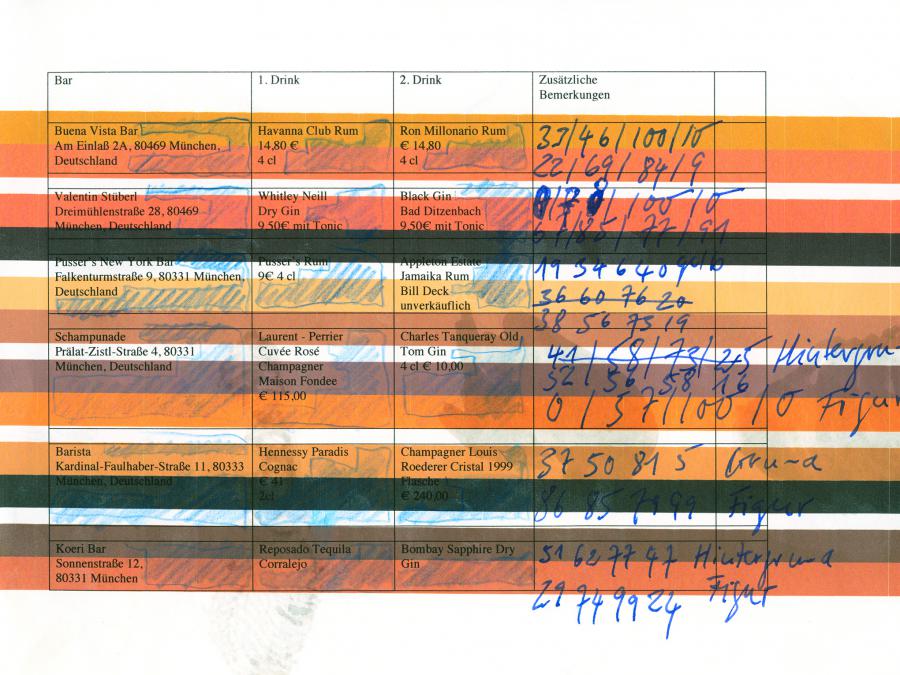 Bar
1. Drink
2. Drink
Zusätzliche
Bemerkungen
Buena Vista Bar
Am Einlaß 2A, 80469 München,
Deutschland
Havanna Club Rum
14,80 €
4 cl
Ron Millonario Rum
€ 14,80
4 cl
33/46/100/15
22/69/84/9
Valentin Stüberl
Dreimühlenstraße 28, 80469
München, Deutschland
Whitley Neill
Dry Gin
9,50€ mit Tonic
Black Gin
Bad Ditzenbach
9,50€ mit Tonic
Pusser's New York Bar
Falkenturmstraße 9, 80331 München,
Deutschland
Pusser's Rum
9€ 4 cl
Appleton Estate
Jamaika Rum
Bill Deck
unverkäuflich
19 34 64 0 gelb
36 60 76 20
38 56 73 19
Schampunade
Prälat-Zistl-Straße 4, 80331
München, Deutschland
Laurent - Perrier
Cuvée Rosé
Champagner
Maison Fondee
€ 115,00
Charles Tanqueray Old
Tom Gin
4 cl € 10,00
52 56 58 16
0 / 57/100 / 0 Figur
Barista
Kardinal-Faulhaber-Straße 11, 80333
München, Deutschland
Hennessy Paradis
Cognac
€ 41
2cl
Champagner Louis
Roederer Cristal 1999
Flasche
€ 240,00
37 50 81 5 Grund
86 85 79 99 Figur
Koeri Bar
Sonnenstraße 12,
80331 München
Reposado Tequila
Corralejo
Bombay Sapphire Dry
Gin
51 62 77 47 Hintergrund
29 74 99 24 Figur